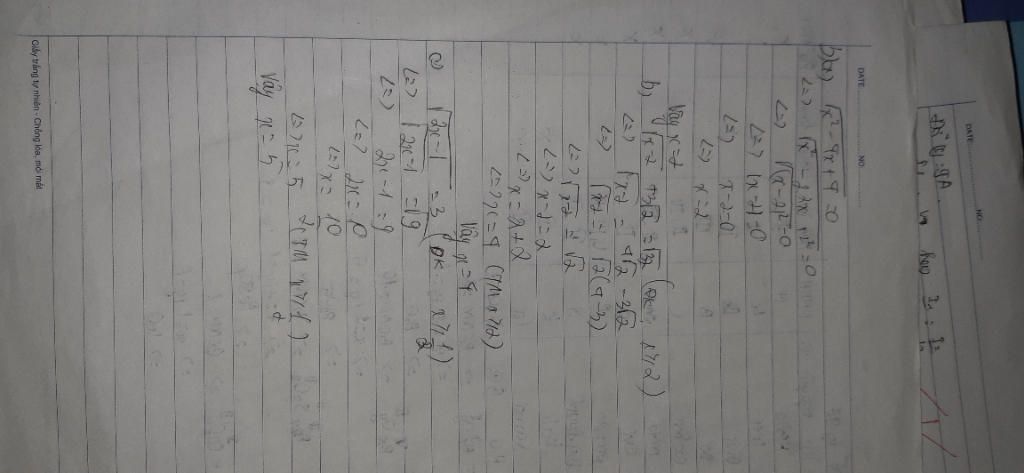 DATE
NO
B(a) √x²-4x+4=0
<=> √x²-2.2x+2²=0
<=> √(x-2)²=0
<=> |x-2|=0
<=> x-2=0
<=> x=2
Vậy x=2
b) √x-2 +3√2 = √32 (ĐK: x≥2)
<=> √x-2 = 4√2-3√2
<=> √x-2 = √2(4-3)
<=> √x-2 = √2
<=> x-2=2
<=> x=2+2
<=> x=4 (TM x≥2)
Vậy x=4
c) √2x-1 = 3 (ĐK: x≥1/2)
<=> √2x-1 = √9
<=> 2x-1=9
<=> 2x=10
<=> x=10/2
<=> x=5 (TM x≥1/2)
Vậy x=5
Giấy trắng tự nhiên - Chống lóa, mỏi mắt
DATE
NO